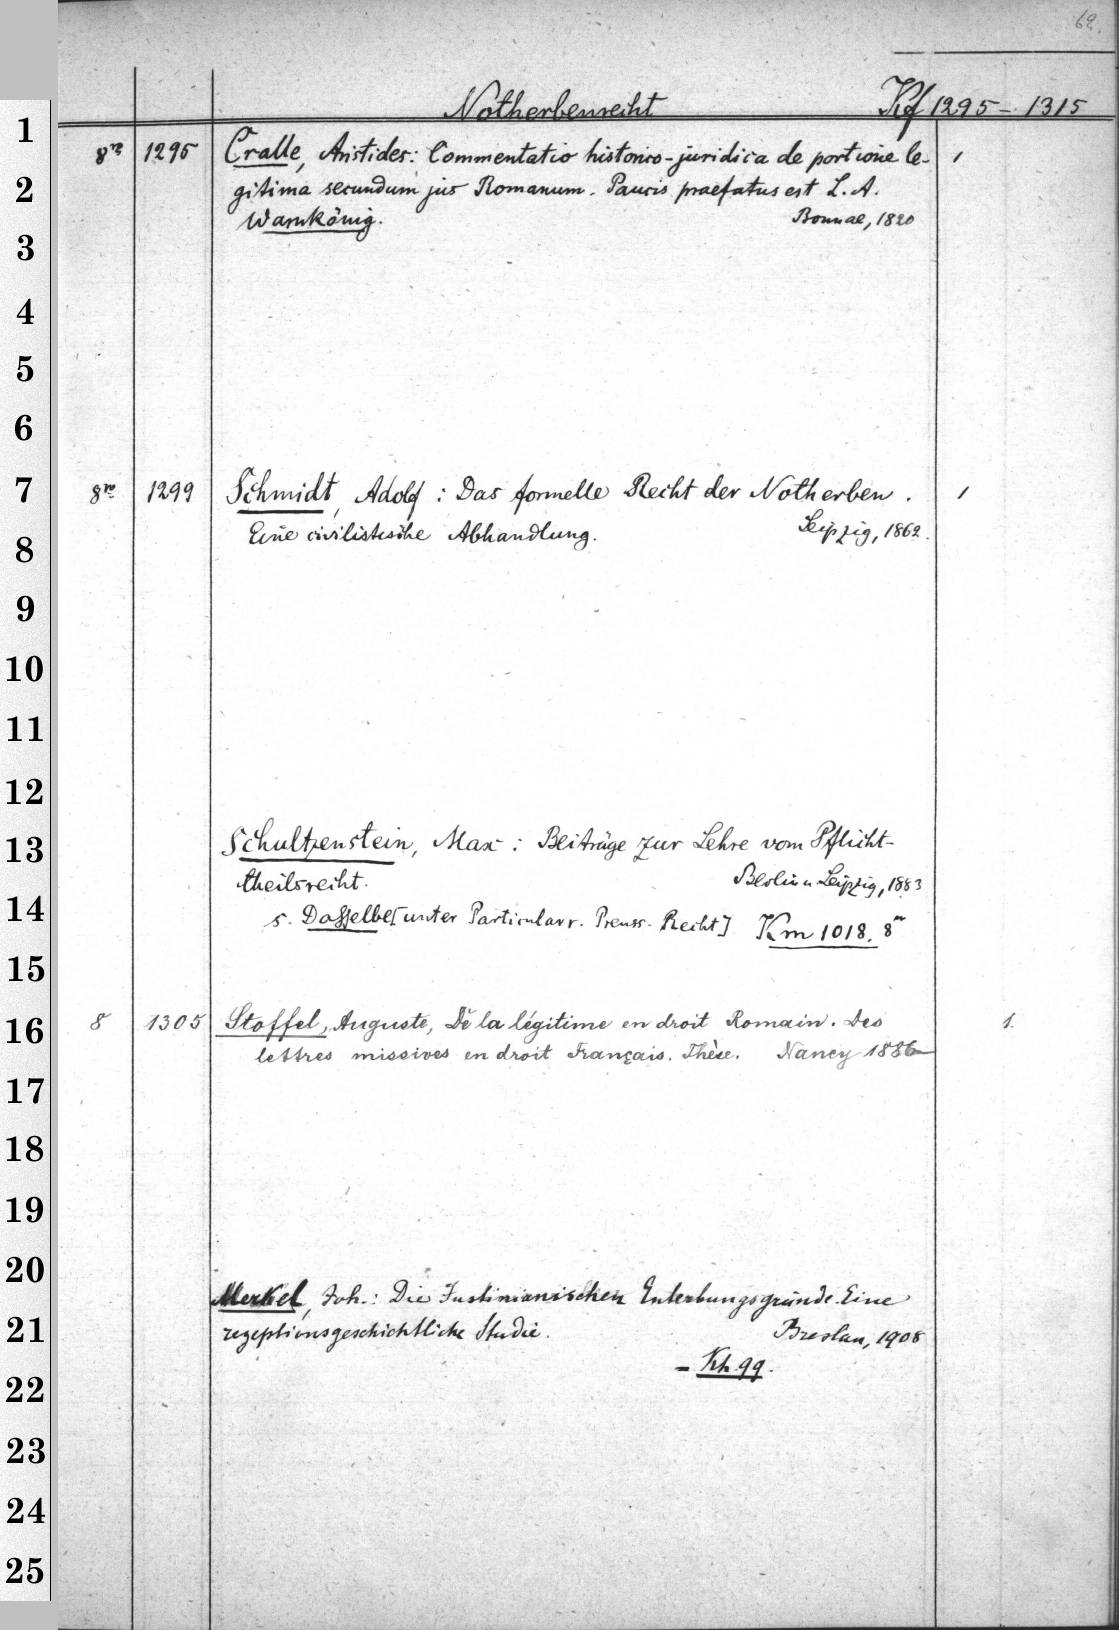 62.
Notherbenrecht Kf 1295 - 1315
1
8vo 1295 Cralle, Aristides: Commentatio historico-juridica de portione le- 1
2
gitima secundum jus Romanum. Paucis praefatus est L. A.
Warnkönig. Bonnae, 1820
3
4
5
6
7
8vo 1299 Schmidt, Adolf: Das formelle Recht der Notherben. 1
Eine civilistische Abhandlung. Leipzig, 1862.
8
9
10
11
12
13
Schultzenstein, Max: Beiträge zur Lehre vom Pflicht-
theilsrecht. Berlin u Leipzig, 1883
14
s. Dasselbe [unter Particularr. Preuss. Recht] Km 1018. 8vo
15
16
8 1305 Stoffel, Auguste, De la légitime en droit Romain. Des 1.
lettres missives en droit Français. Thèse. Nancy 1886
17
18
19
20
Merkel, Joh.: Die Justinianischen Enterbungsgründe. Eine
21
rezeptionsgeschichtliche Studie. Breslau, 1908
22
- Kh 99.
23
24
25